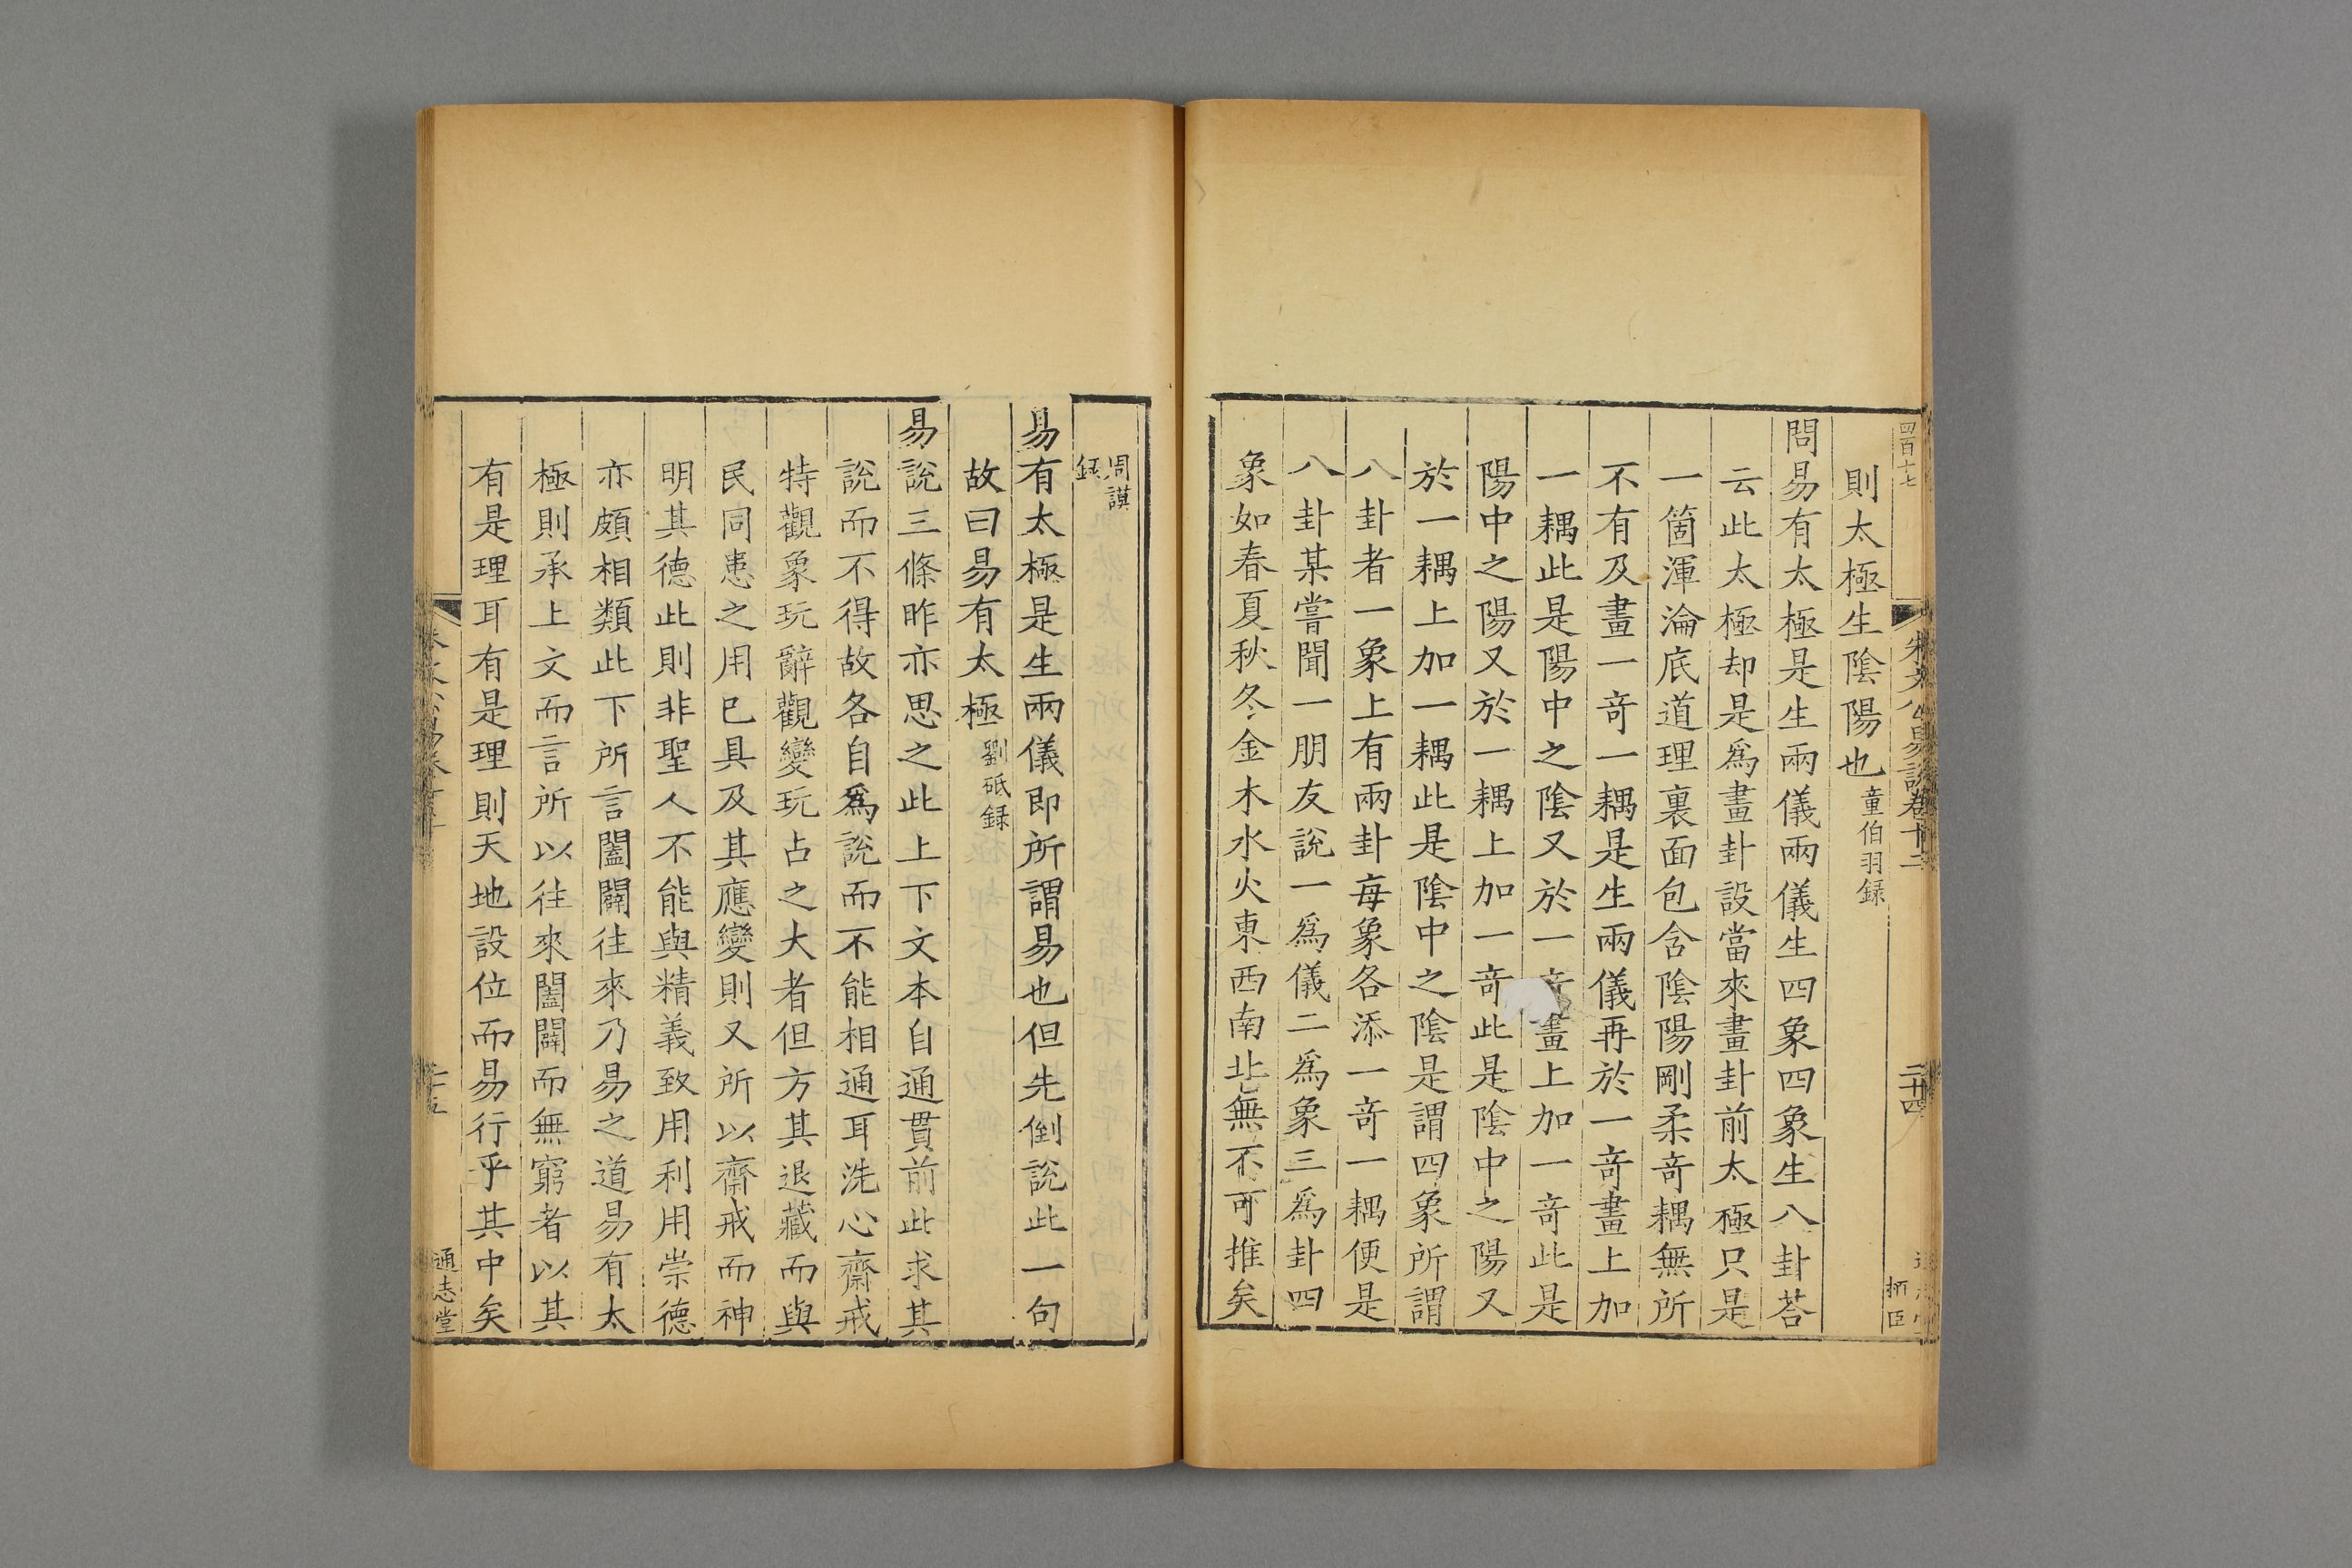 四百十七
朱文公易說卷十二
二十四
則太極生陰陽也童伯羽録
問易有太極是生兩儀兩儀生四象四象生八卦荅
云此太極却是爲畫卦設當來畫卦前太極只是
一箇渾淪底道理裏面包含陰陽剛柔竒耦無所
不有及畫一竒一耦是生兩儀再於一竒畫上加
一耦此是陽中之陰又於一竒畫上加一竒此是
陽中之陽又於一耦上加一竒此是陰中之陽又
於一耦上加一耦此是陰中之陰是謂四象所謂
八卦者一象上有兩卦每象各添一竒一耦便是
八卦某嘗聞一朋友說一爲儀二爲象三爲卦四
象如春夏秋冬金木水火東西南北無不可推矣
周謨
録
易有太極是生兩儀即所謂易也但先倒說此一句
故曰易有太極劉砥録
易說三條昨亦思之此上下文本自通貫前此求其
說而不得故各自爲說而不能相通耳洗心齋戒
特觀象玩辭觀變玩占之大者但方其退藏而與
民同患之用已具及其應變則又所以齋戒而神
明其德此則非聖人不能與精義致用利用崇德
亦頗相類此下所言闔闢往來乃易之道易有太
極則承上文而言所以往來闔闢而無窮者以其
有是理耳有是理則天地設位而易行乎其中矣
二十五
通志堂